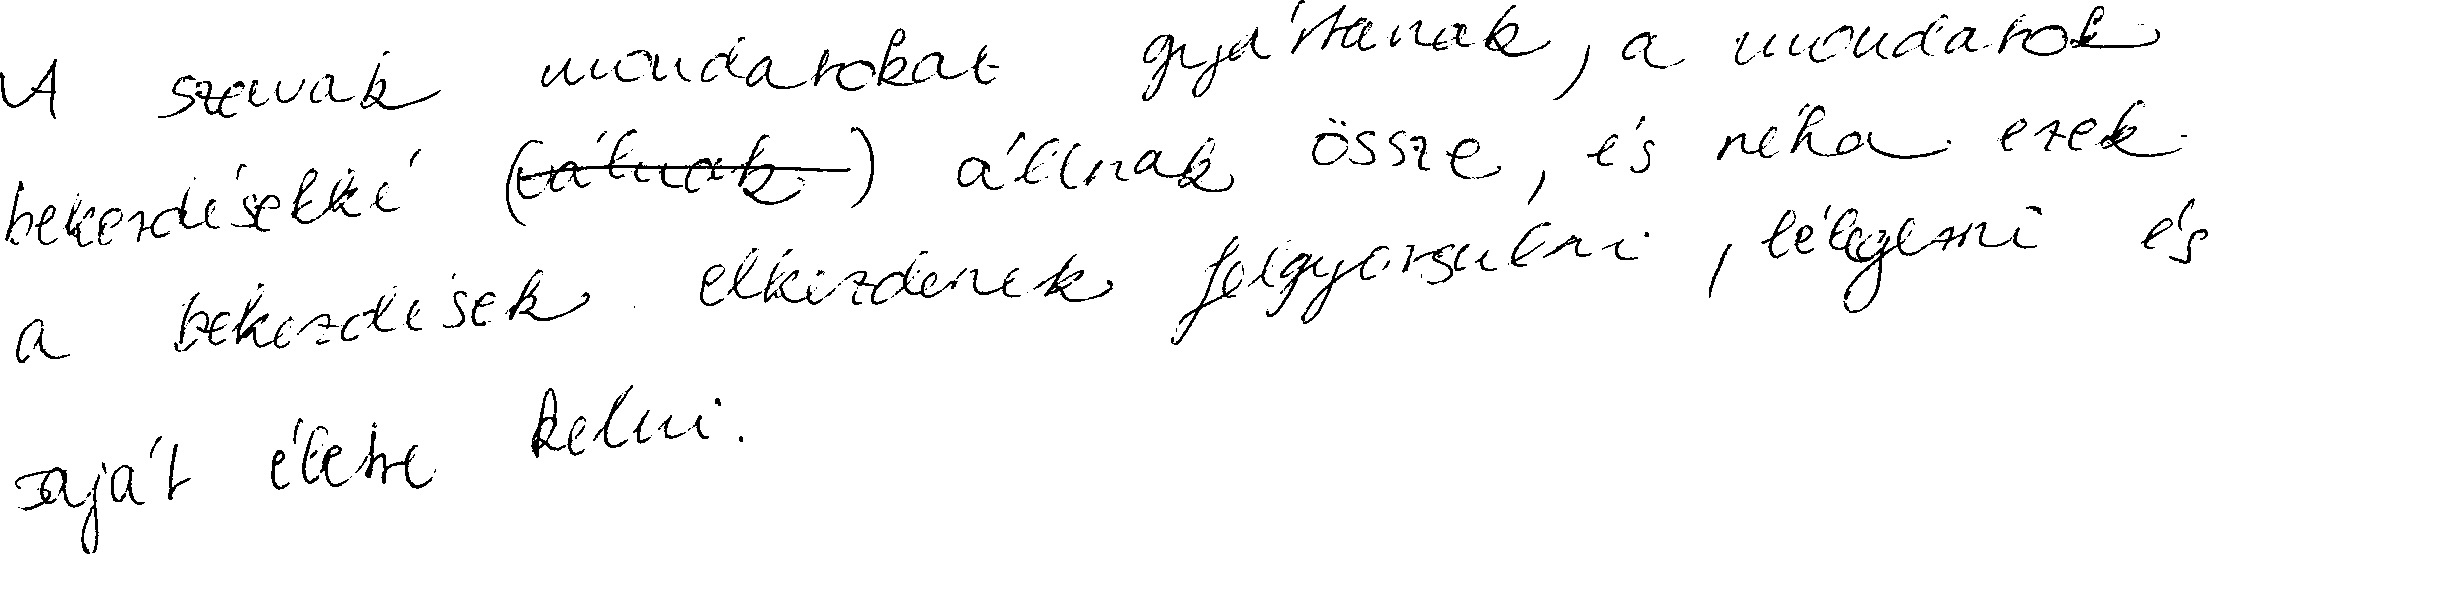 A szavak mondatokat gyártanak, a mondatok
bekezdésekké () állnak össze, és néha ezek
a bekezdések elkezdenek felgyorsulni, lélegezni és
saját életre kelni.